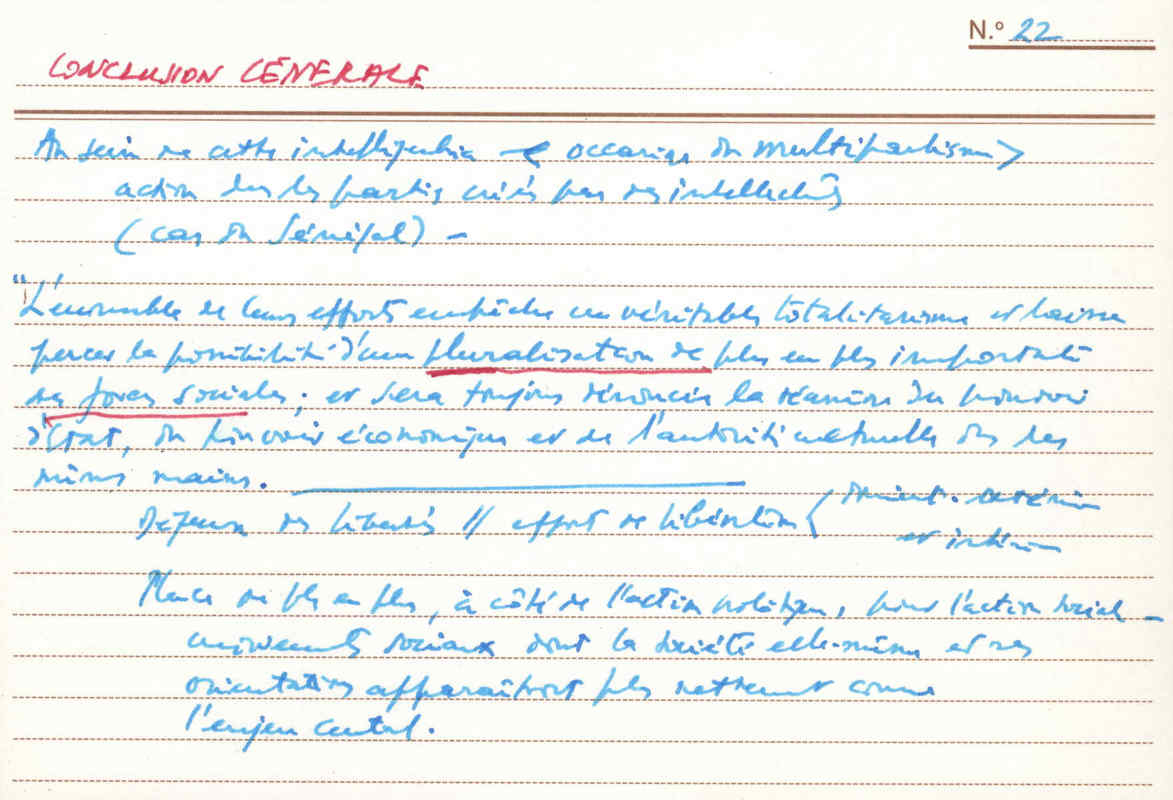 N.º 22
CONCLUSION GÉNÉRALE
Au sein de cette intelligentsia < occasion du multipartisme >
action des les partis créés par des intellectuels
(cas du Sénégal) -
"L'ensemble de leurs efforts empêche un véritable totalitarisme et laisse
percer la possibilité d'une pluralisation de plus en plus importante
des forces sociales; et sera toujours dénoncée la réunion du pouvoir
d'État, du pouvoir économique et de l'autorité culturelle ds les
mêmes mains.
Défense des libertés // effort de libération (
et intérieure
Place de plus en plus, à côté de l'action politique, pour l'action sociale -
mouvements sociaux dont la société elle-même et ses
orientations apparaîtront plus nettement comme
l'enjeu central.